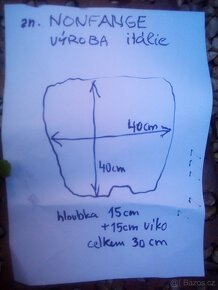 zn. NONFANGE
VÝROBA itálie
40cm
40cm
hloubka 15cm
+15cm víko
celkem 30 cm
Bazos.cz